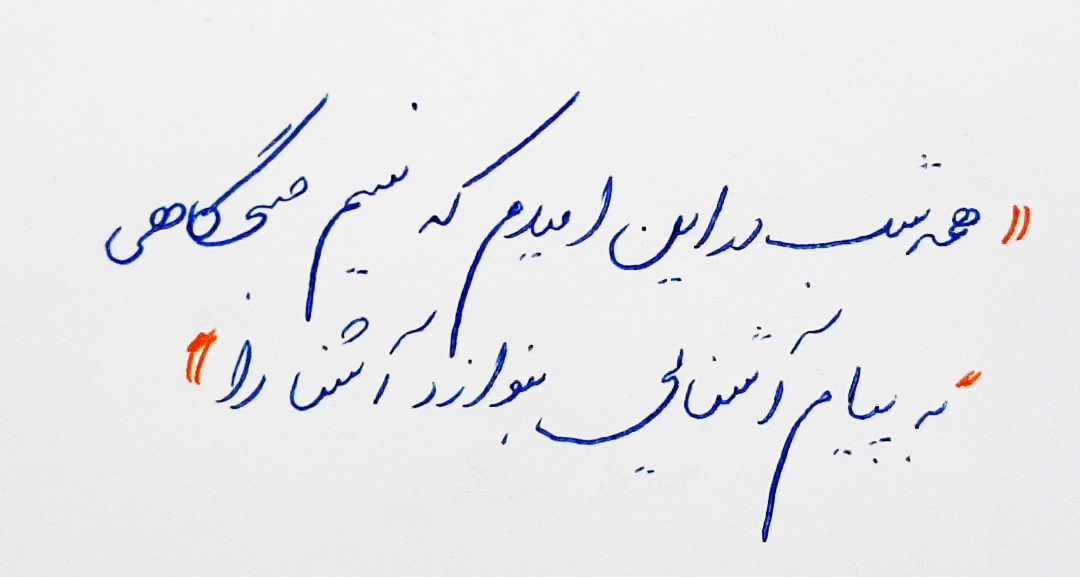 «همه شب در این امیدم که نسیم صبحگاهی
به پیام آشنایی بنوازد آشنا را»